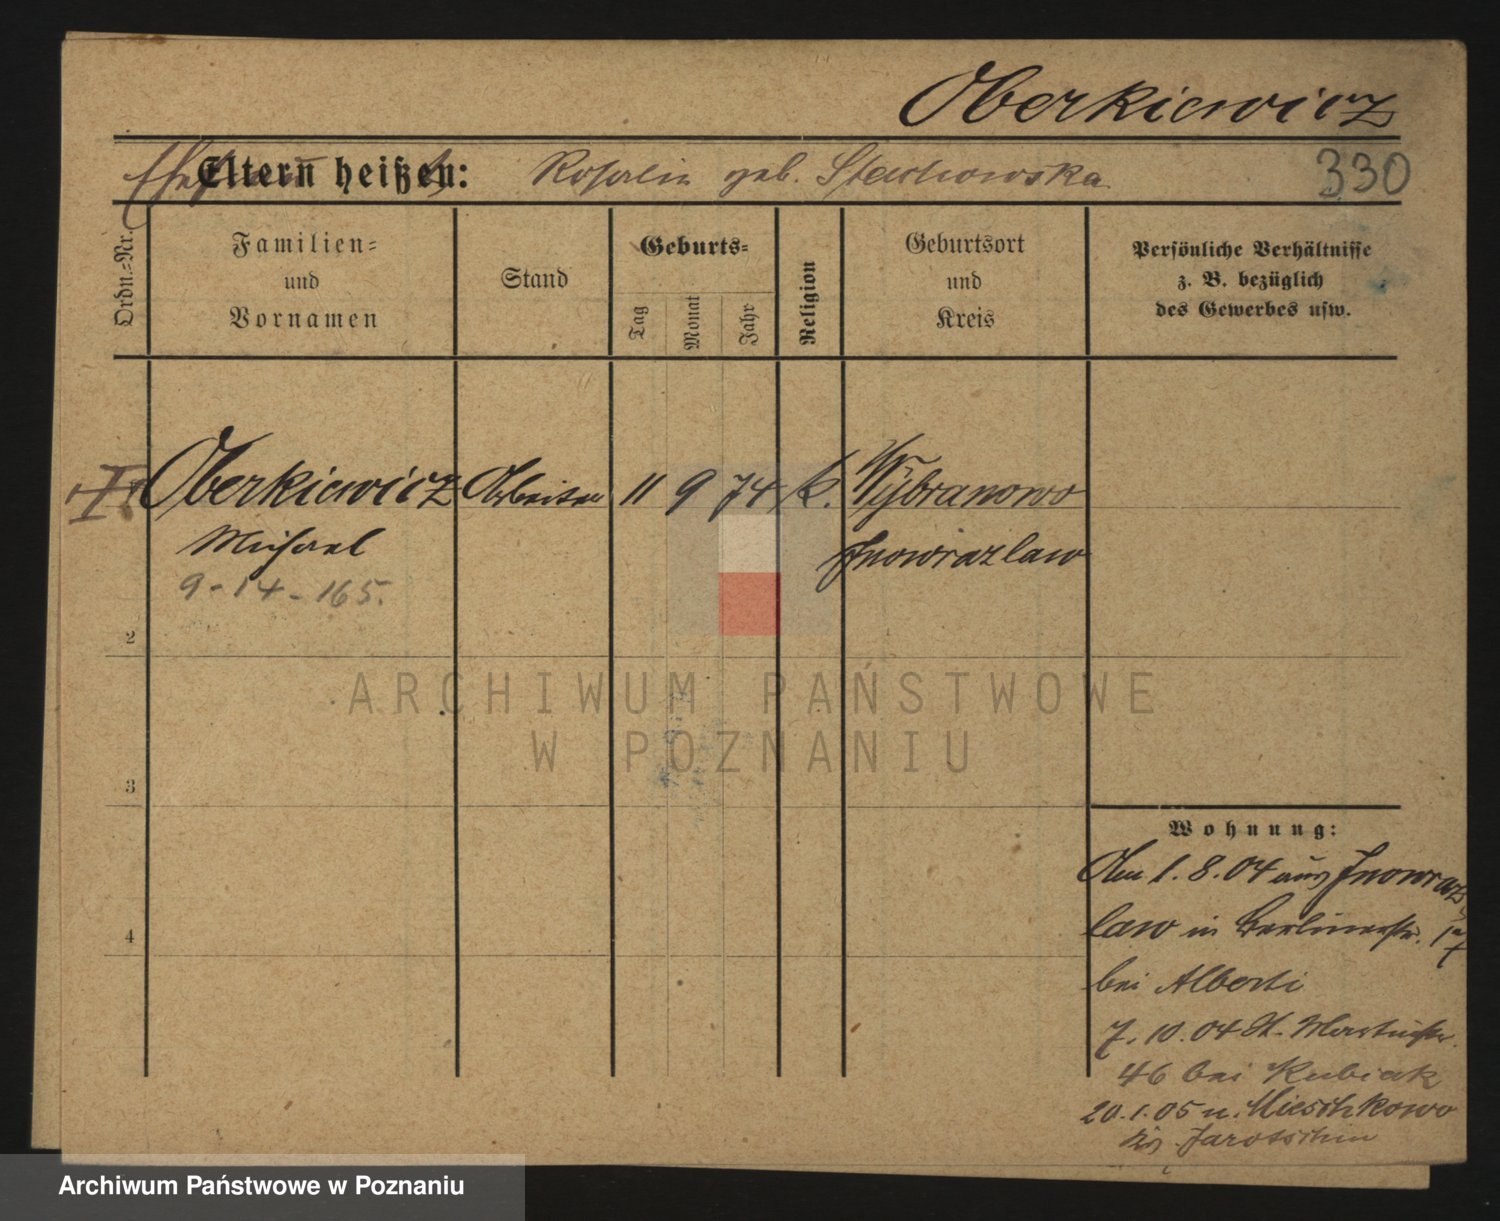 Oberkiewicz
Eltern heißen:
Ehefrau Rosalie geb. Stachowska
330
Ordn.=Nr.
Familien=
und
Vornamen
Stand
Geburts=
Tag
Monat
Jahr
Religion
Geburtsort
und
Kreis
Persönliche Verhältnisse
z. B. bezüglich
des Gewerbes usw.
I Oberkiewicz Arbeiter 11 9 74 k. Wybranowo
Michael Inowrazlaw
9-14-165.
2
3
4
ARCHIWUM PAŃSTWOWE
W POZNANIU
Wohnung:
Am 1.8.04 aus Inowraz
law in Berlinerstr. 17
bei Alberti
7.10.04 St. Martinstr.
46 bei Kubiak
20.1.05 n. Mieschkowo
Jarotschin
Archiwum Państwowe w Poznaniu